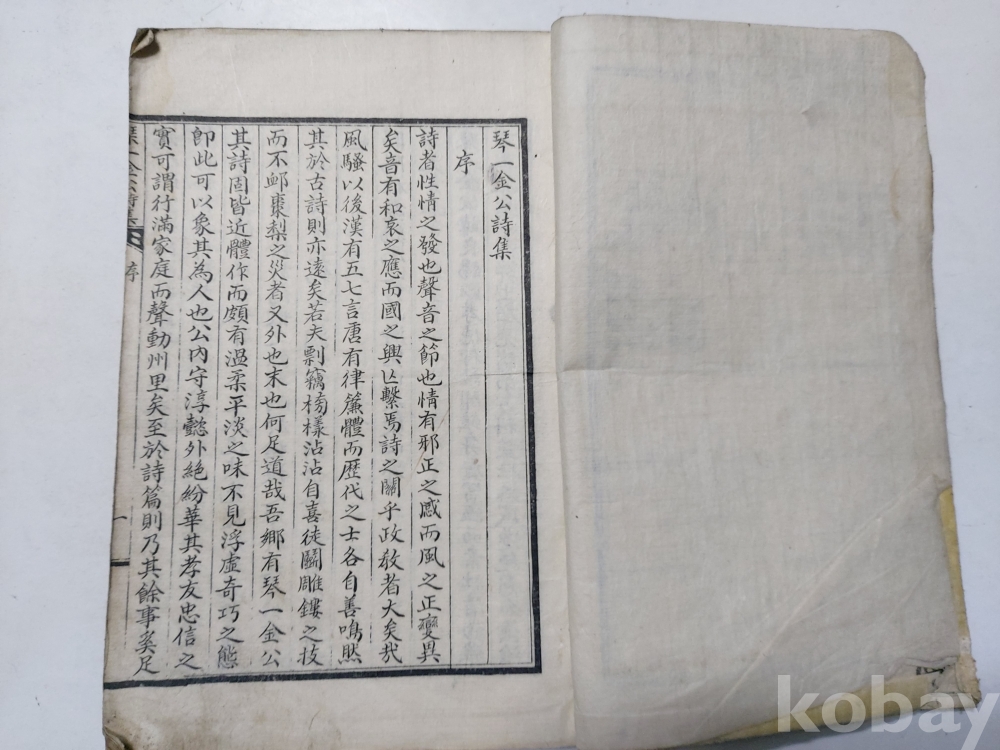 琴一金公詩集
序
詩者性情之發也聲音之節也情有邪正之感而風之正變異
矣音有和哀之應而國之興亡繫焉詩之關乎政敎者大矣哉
風騷以後漢有五七言唐有律簾體而歷代之士各自善鳴然
其於古詩則亦遠矣若夫剽竊模樣沾沾自喜徒鬪雕鏤之技
而不衈棗梨之災者又外也末也何足道哉吾鄉有琴一金公
其詩固皆近體作而頗有温柔平淡之味不見浮虛奇巧之態
卽此可以象其為人也公內守淳懿外絶紛華其孝友忠信之
實可謂行滿家庭而聲動州里矣至於詩篇則乃其餘事奚足
琴一金公詩集
序
一
kobay